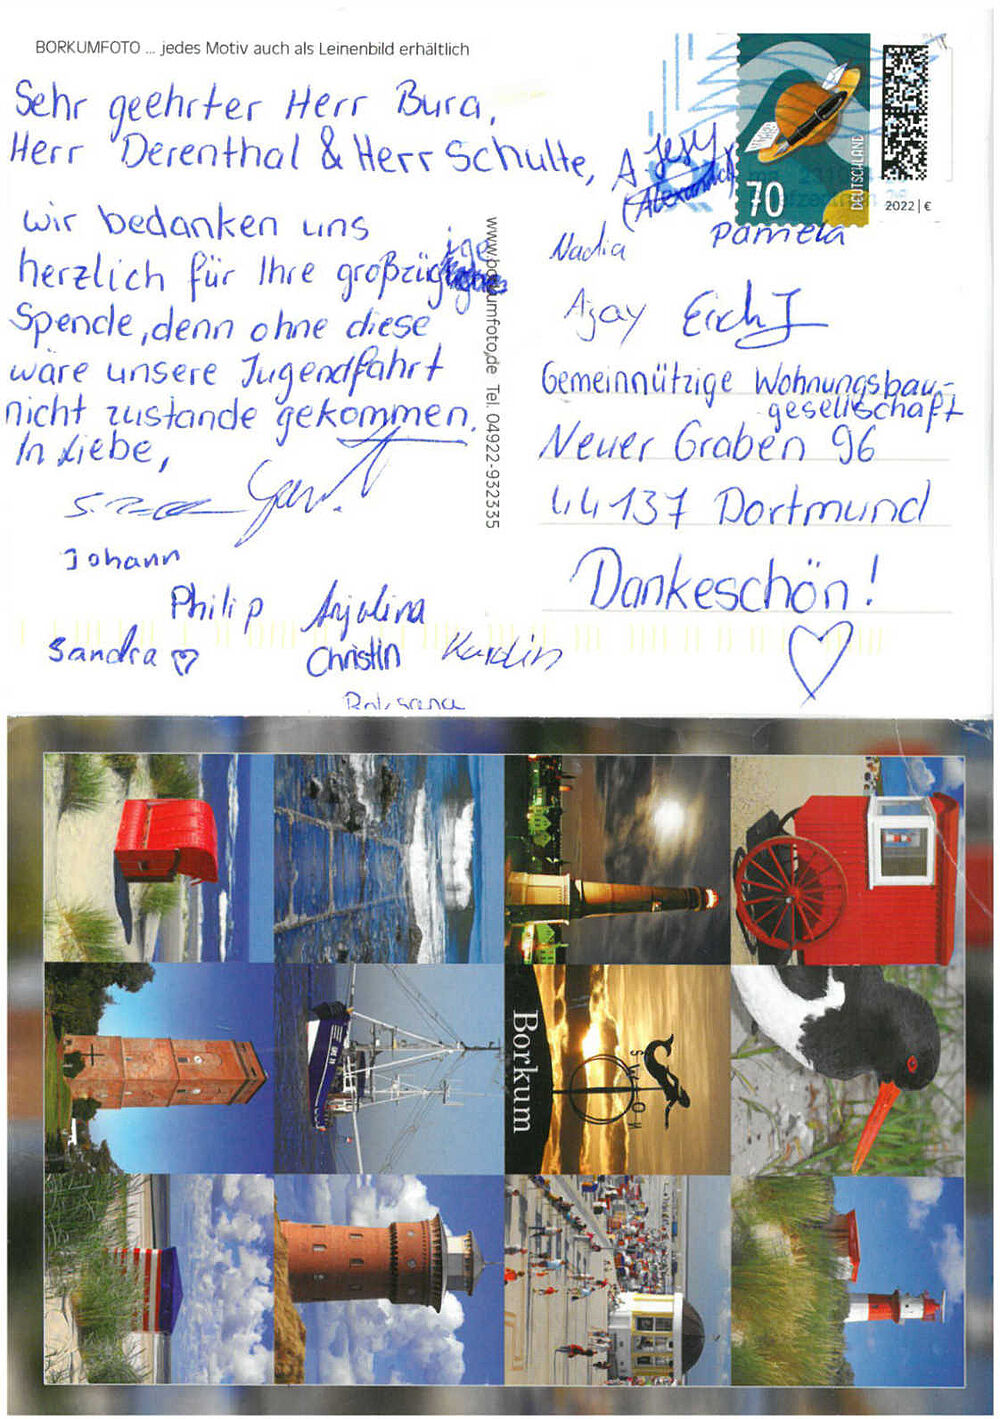 BORKUMFOTO ... jedes Motiv auch als Leinenbild erhältlich
Sehr geehrter Herr Bura,
Herr Derenthal & Herr Schulte,
wir bedanken uns
herzlich für Ihre großzügige
Spende, denn ohne diese
wäre unsere Jugendfahrt
nicht zustande gekommen.
In Liebe,
Johann
Philip Anjelina
Sandra Christin Karolin
www.borkumfoto.de Tel. 04922-932335
70
DEUTSCHLAND
2022 | €
(Alexander)
Nadia Pamela
Ajay Erich J
Gemeinnützige Wohnungsbau-
gesellschaft
Neuer Graben 96
44137 Dortmund
Dankeschön!
Borkum